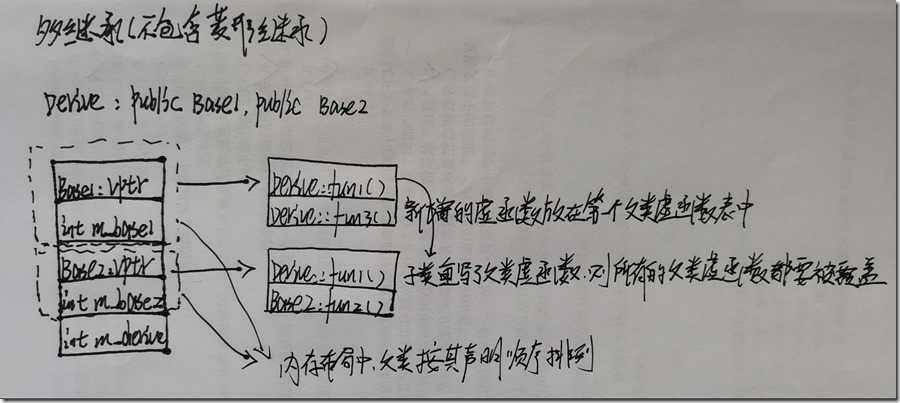 多继承(不包含菱形继承)
Derive : public Base1, public Base2
Base1::vptr
int m_base1
Base2::vptr
int m_base2
int m_derive
Derive::fun1()
Derive::fun3()
新增的虚函数放在第一个父类虚函数表中
Derive::fun1()
Base2::fun2()
子类重写了父类虚函数,则所有的父类虚函数都要被覆盖
内存布局中,父类按其声明顺序排列